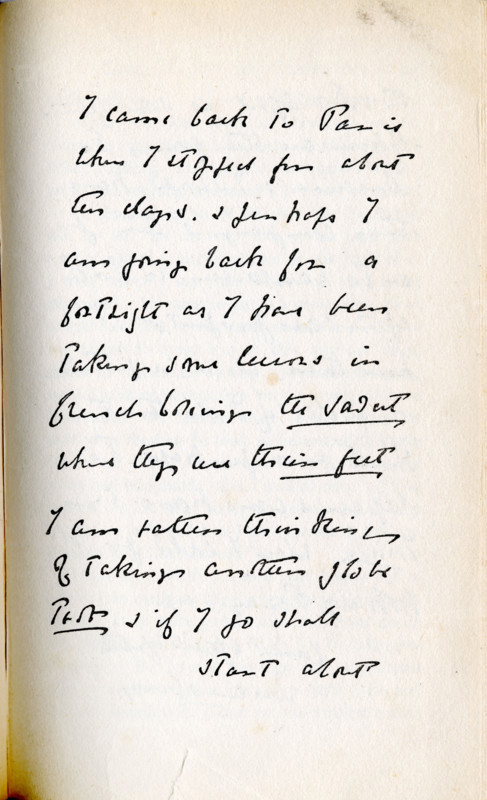 I came back to Paris
where I stopped for about
ten days. & perhaps I
am going back for a
fortnight as I have been
taking some lessons in
french boxing the savat
where they use their feet
I am rather thinking
of taking another globe
trot & if I go shall
start about